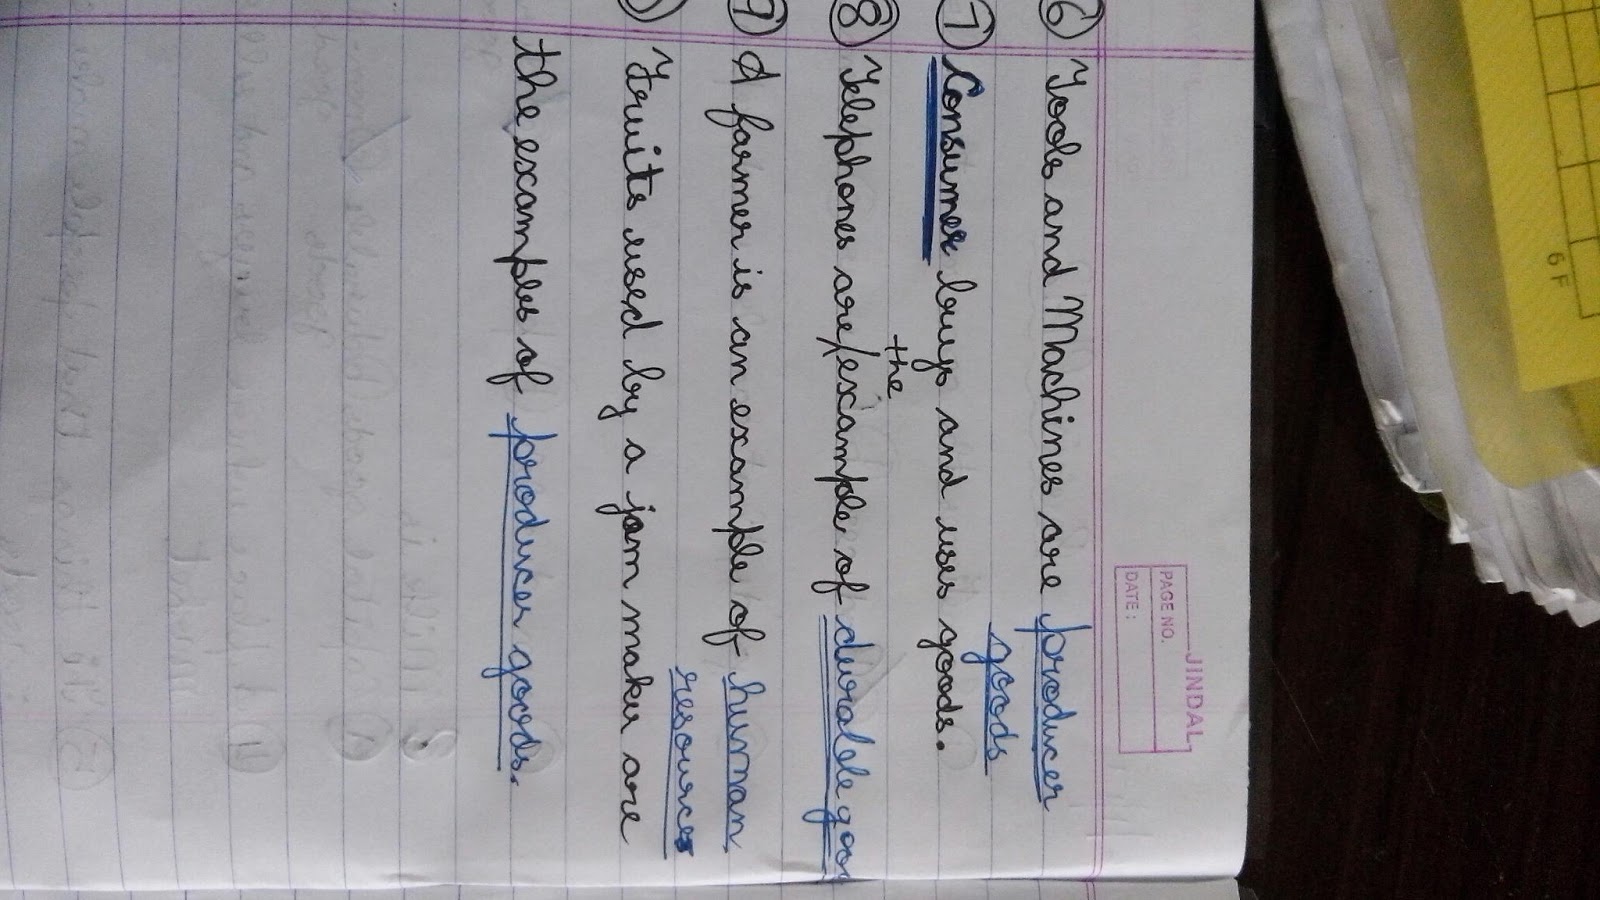 JINDAL
PAGE NO.
DATE :
6 Tools and Machines are producer
goods
7 Consumer buys and uses goods.
the
8 Telephones are/example of durable goo
9 A farmer is an example of human
resources
Fruits used by a jam maker are
the examples of producer goods.
6F